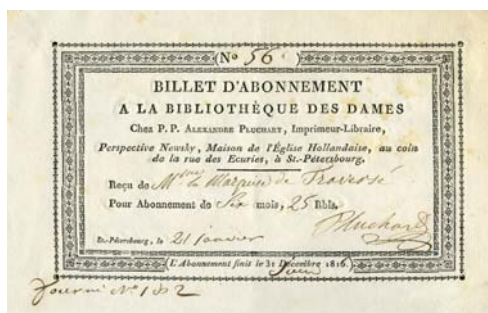 (N° 56)
BILLET D'ABONNEMENT
A LA BIBLIOTHÈQUE DES DAMES
Chez P. P. ALEXANDRE PLUCHART, Imprimeur-Libraire,
Perspective Newsky, Maison de l'Église Hollandaise, au coin
de la rue des Ecuries, à St.-Pétersbourg.
Reçu de Mme la Marquise de Traversé
Pour Abonnement de Six mois, 25 Rbls.
Pluchart
St.-Pétersbourg, le 21 janvier
(L'Abonnement finit le 31 Décembre 1816.)
Juin
fourni N° 182